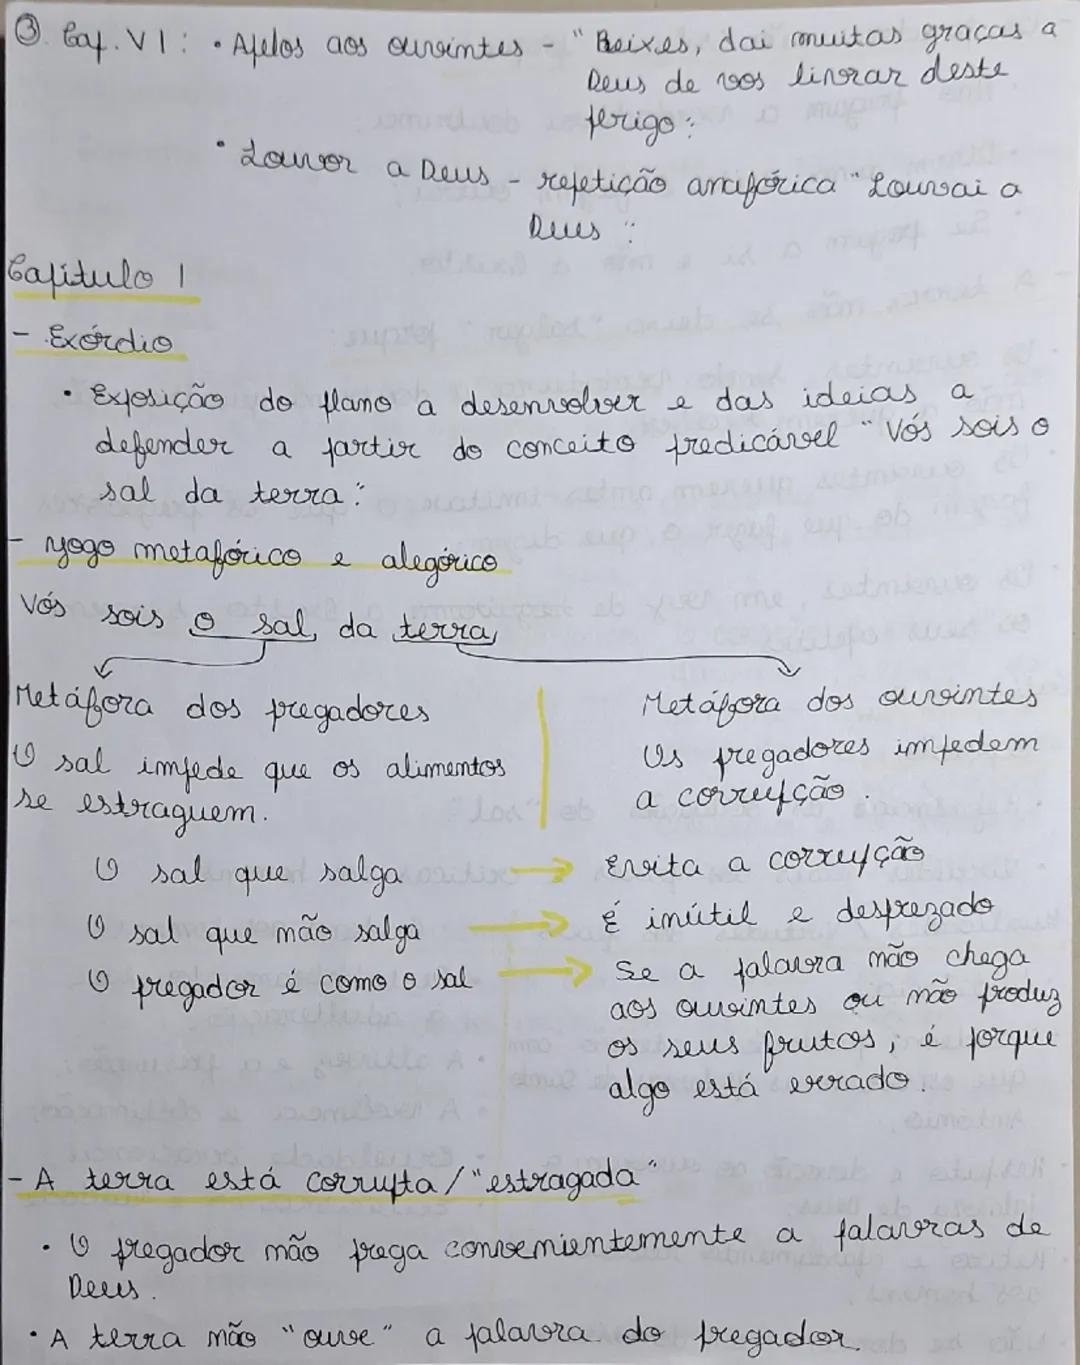 ③. Cap. VI: • Apelos aos ouvintes - "Peixes, dai muitas graças a
Deus de vos livrar deste
perigo";
• Louvor a Deus - repetição anafórica "Louvai a
Deus".
Capítulo 1
- Exórdio
• Exposição do plano a desenvolver e das ideias a
defender a partir do conceito predicável "Vós sois o
sal da terra".
- Jogo metafórico e alegórico
Vós sois o sal da terra
Metáfora dos pregadores
O sal impede que os alimentos
se estraguem.
Metáfora dos ouvintes
Os pregadores impedem
a corrupção.
O sal que salga → Evita a corrupção
O sal que não salga → É inútil e desprezado
O pregador é como o sal → Se a palavra não chega
aos ouvintes ou não produz
os seus frutos, é porque
algo está errado.
- A terra está corrupta/"estragada"
• O pregador não prega convenientemente a palavras de
Deus.
• A terra não "ouve" a palavra do pregador.